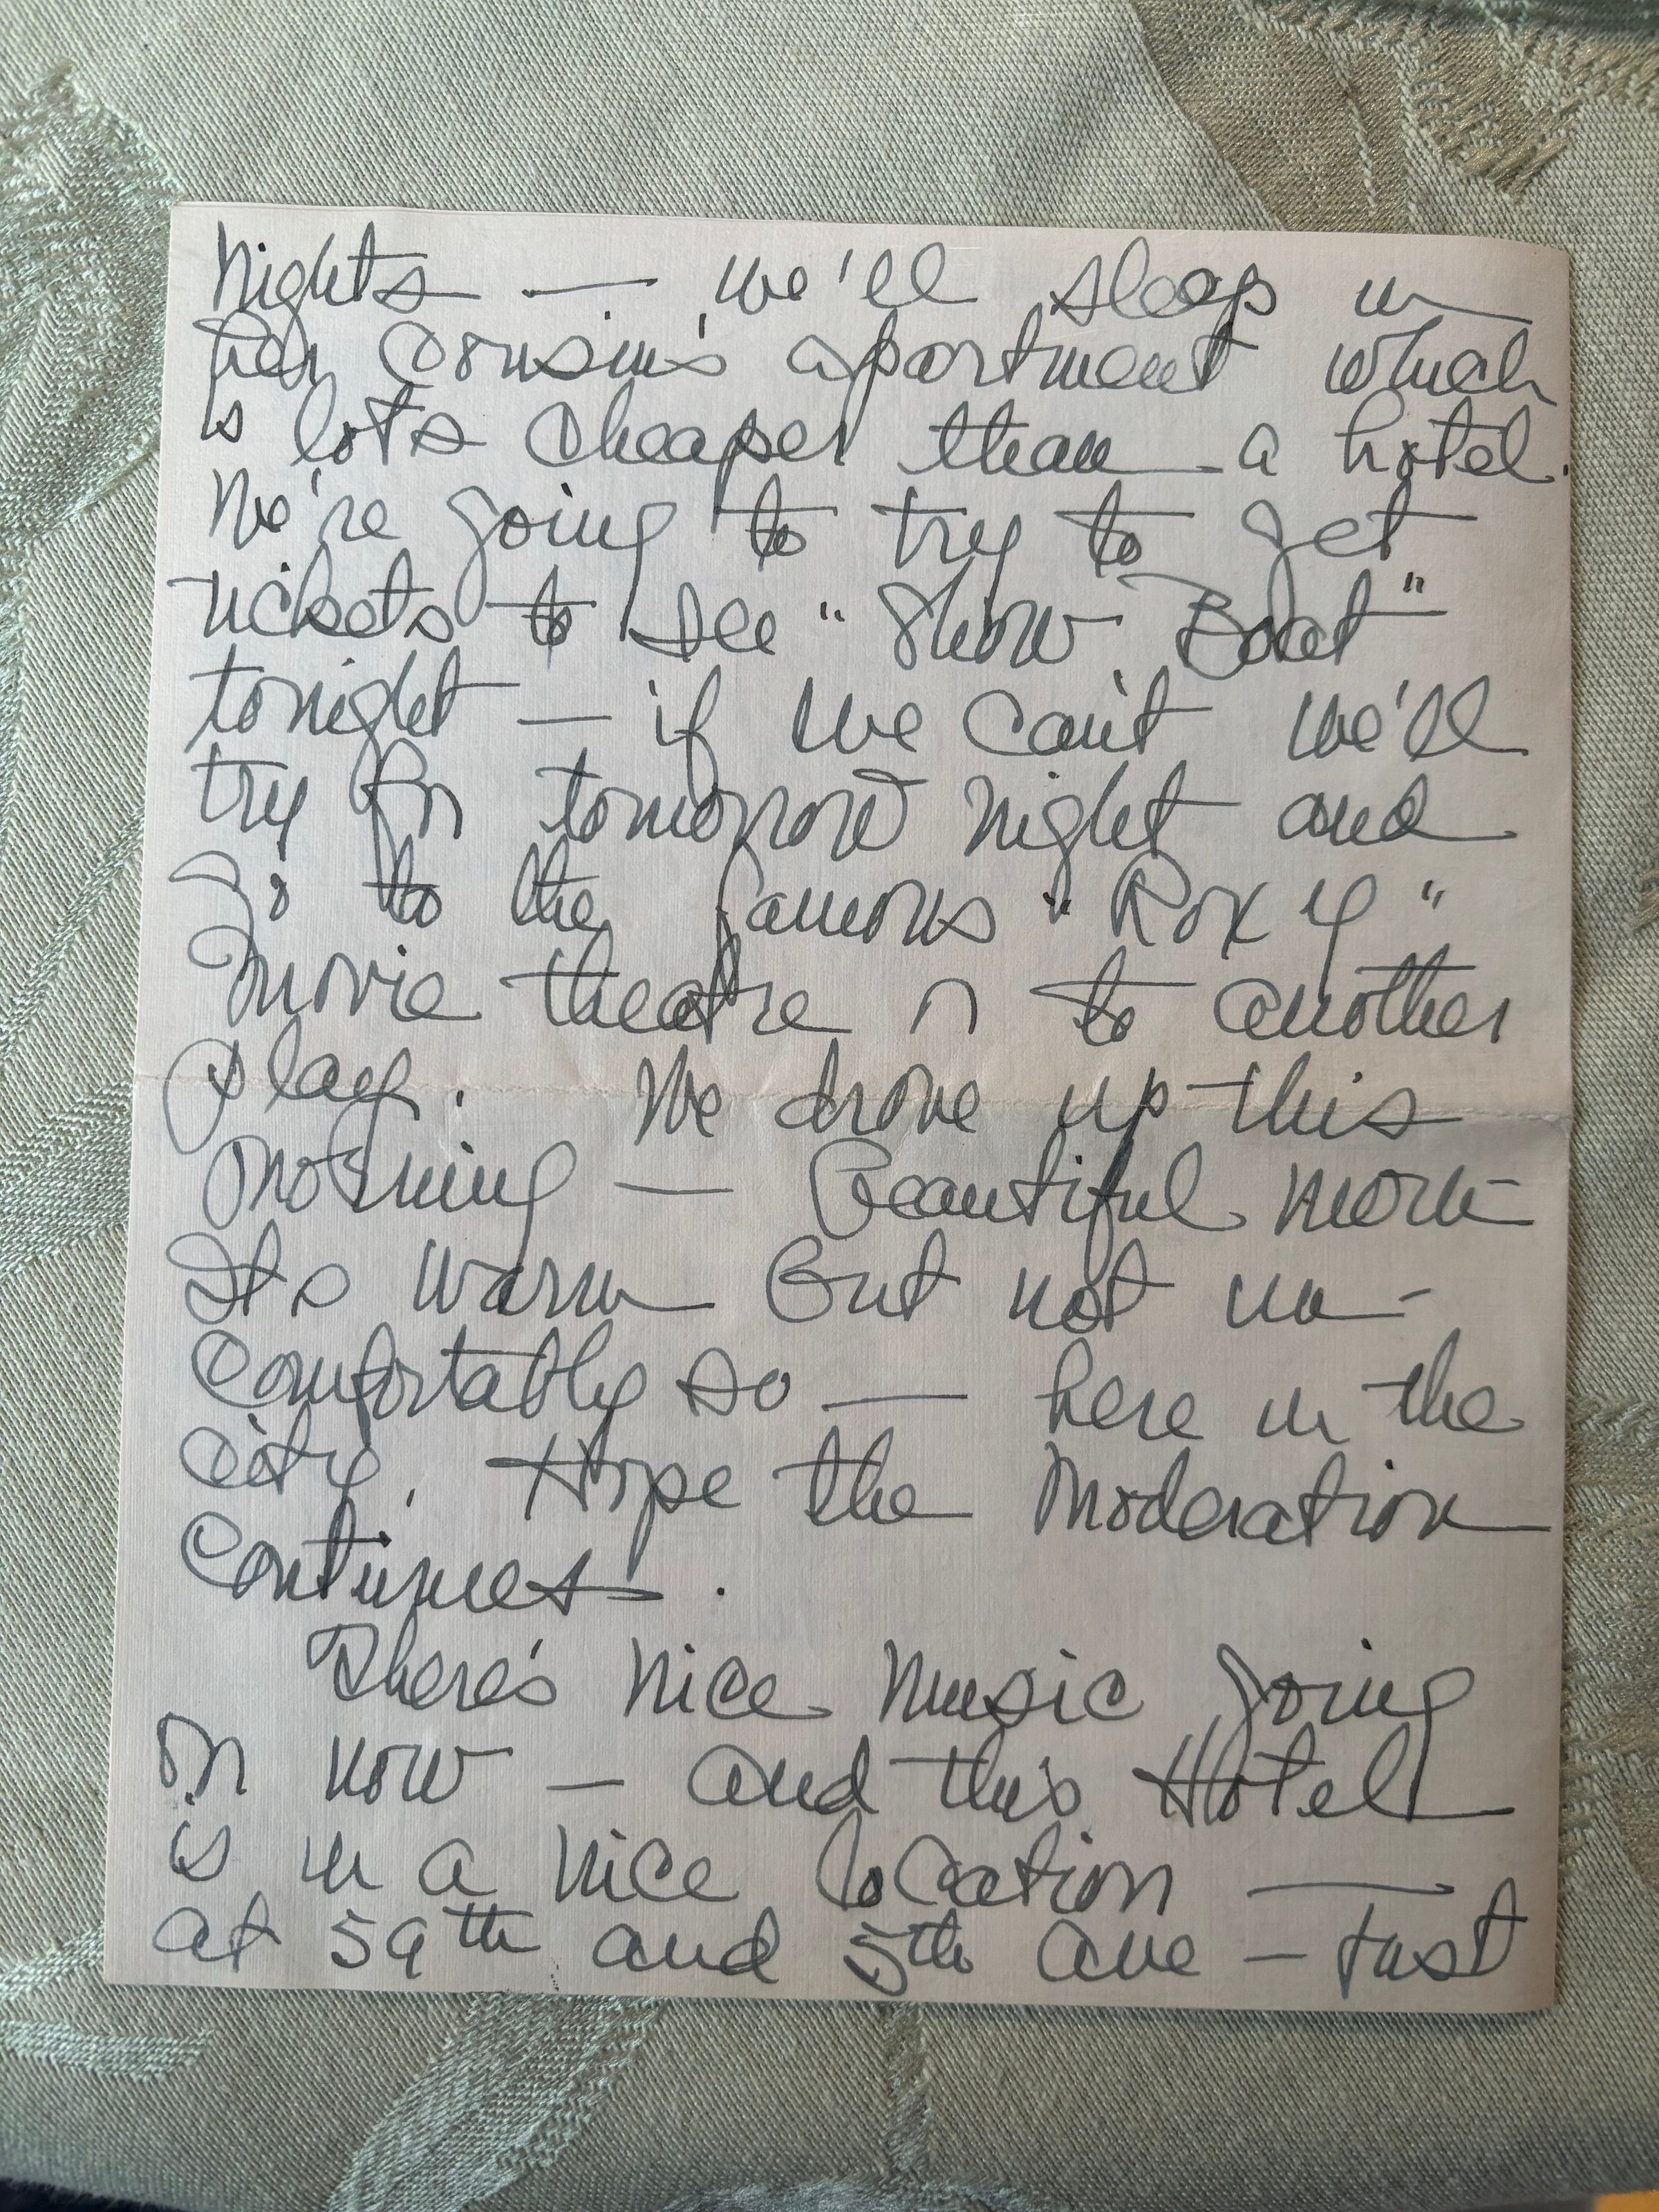 nights — we'll sleep in
her cousin's apartment which
is lots cheaper than a hotel.
We're going to try to get
tickets to see "Show Boat"
tonight — if we can't we'll
try for tomorrow night and
go to the famous "Roxy"
movie theatre or to another
play. We drove up this
morning — Beautiful morn—
It's warm but not un-
comfortably so — here in the
city. Hope the moderation
continues.
There's nice music going
on now — and this Hotel
is in a nice location —
at 59th and 5th Ave — just